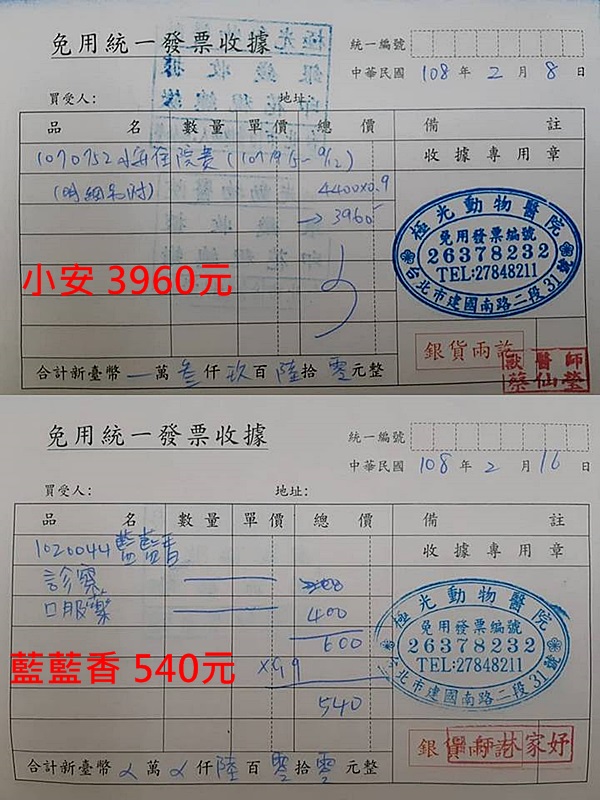 免用統一發票收據
統一編號
中華民國 108 年 2 月 8 日
買受人: 地址:
品名 數量 單價 總價 備註
1070752 小安住院費 (107/9/5-9/12) 收據專用章
(明細另附) 4400x0.9
→ 3960
極光動物醫院
免用發票編號
26378232
TEL:27848211
台北市建國南路二段31號
小安 3960元
銀貨兩訖
獸醫師
蔡仙瑩
合計新臺幣 萬 叁 仟 玖 百 陸 拾 零 元整
免用統一發票收據
統一編號
中華民國 108 年 2 月 16 日
買受人: 地址:
品名 數量 單價 總價 備註
1020044 藍藍香 收據專用章
診察
口服藥 400
600
x0.9
540
極光動物醫院
免用發票編號
26378232
TEL:27848211
台北市建國南路二段31號
藍藍香 540元
銀貨兩訖
家妤
合計新臺幣 萬 仟 陸 百 零 拾 零 元整